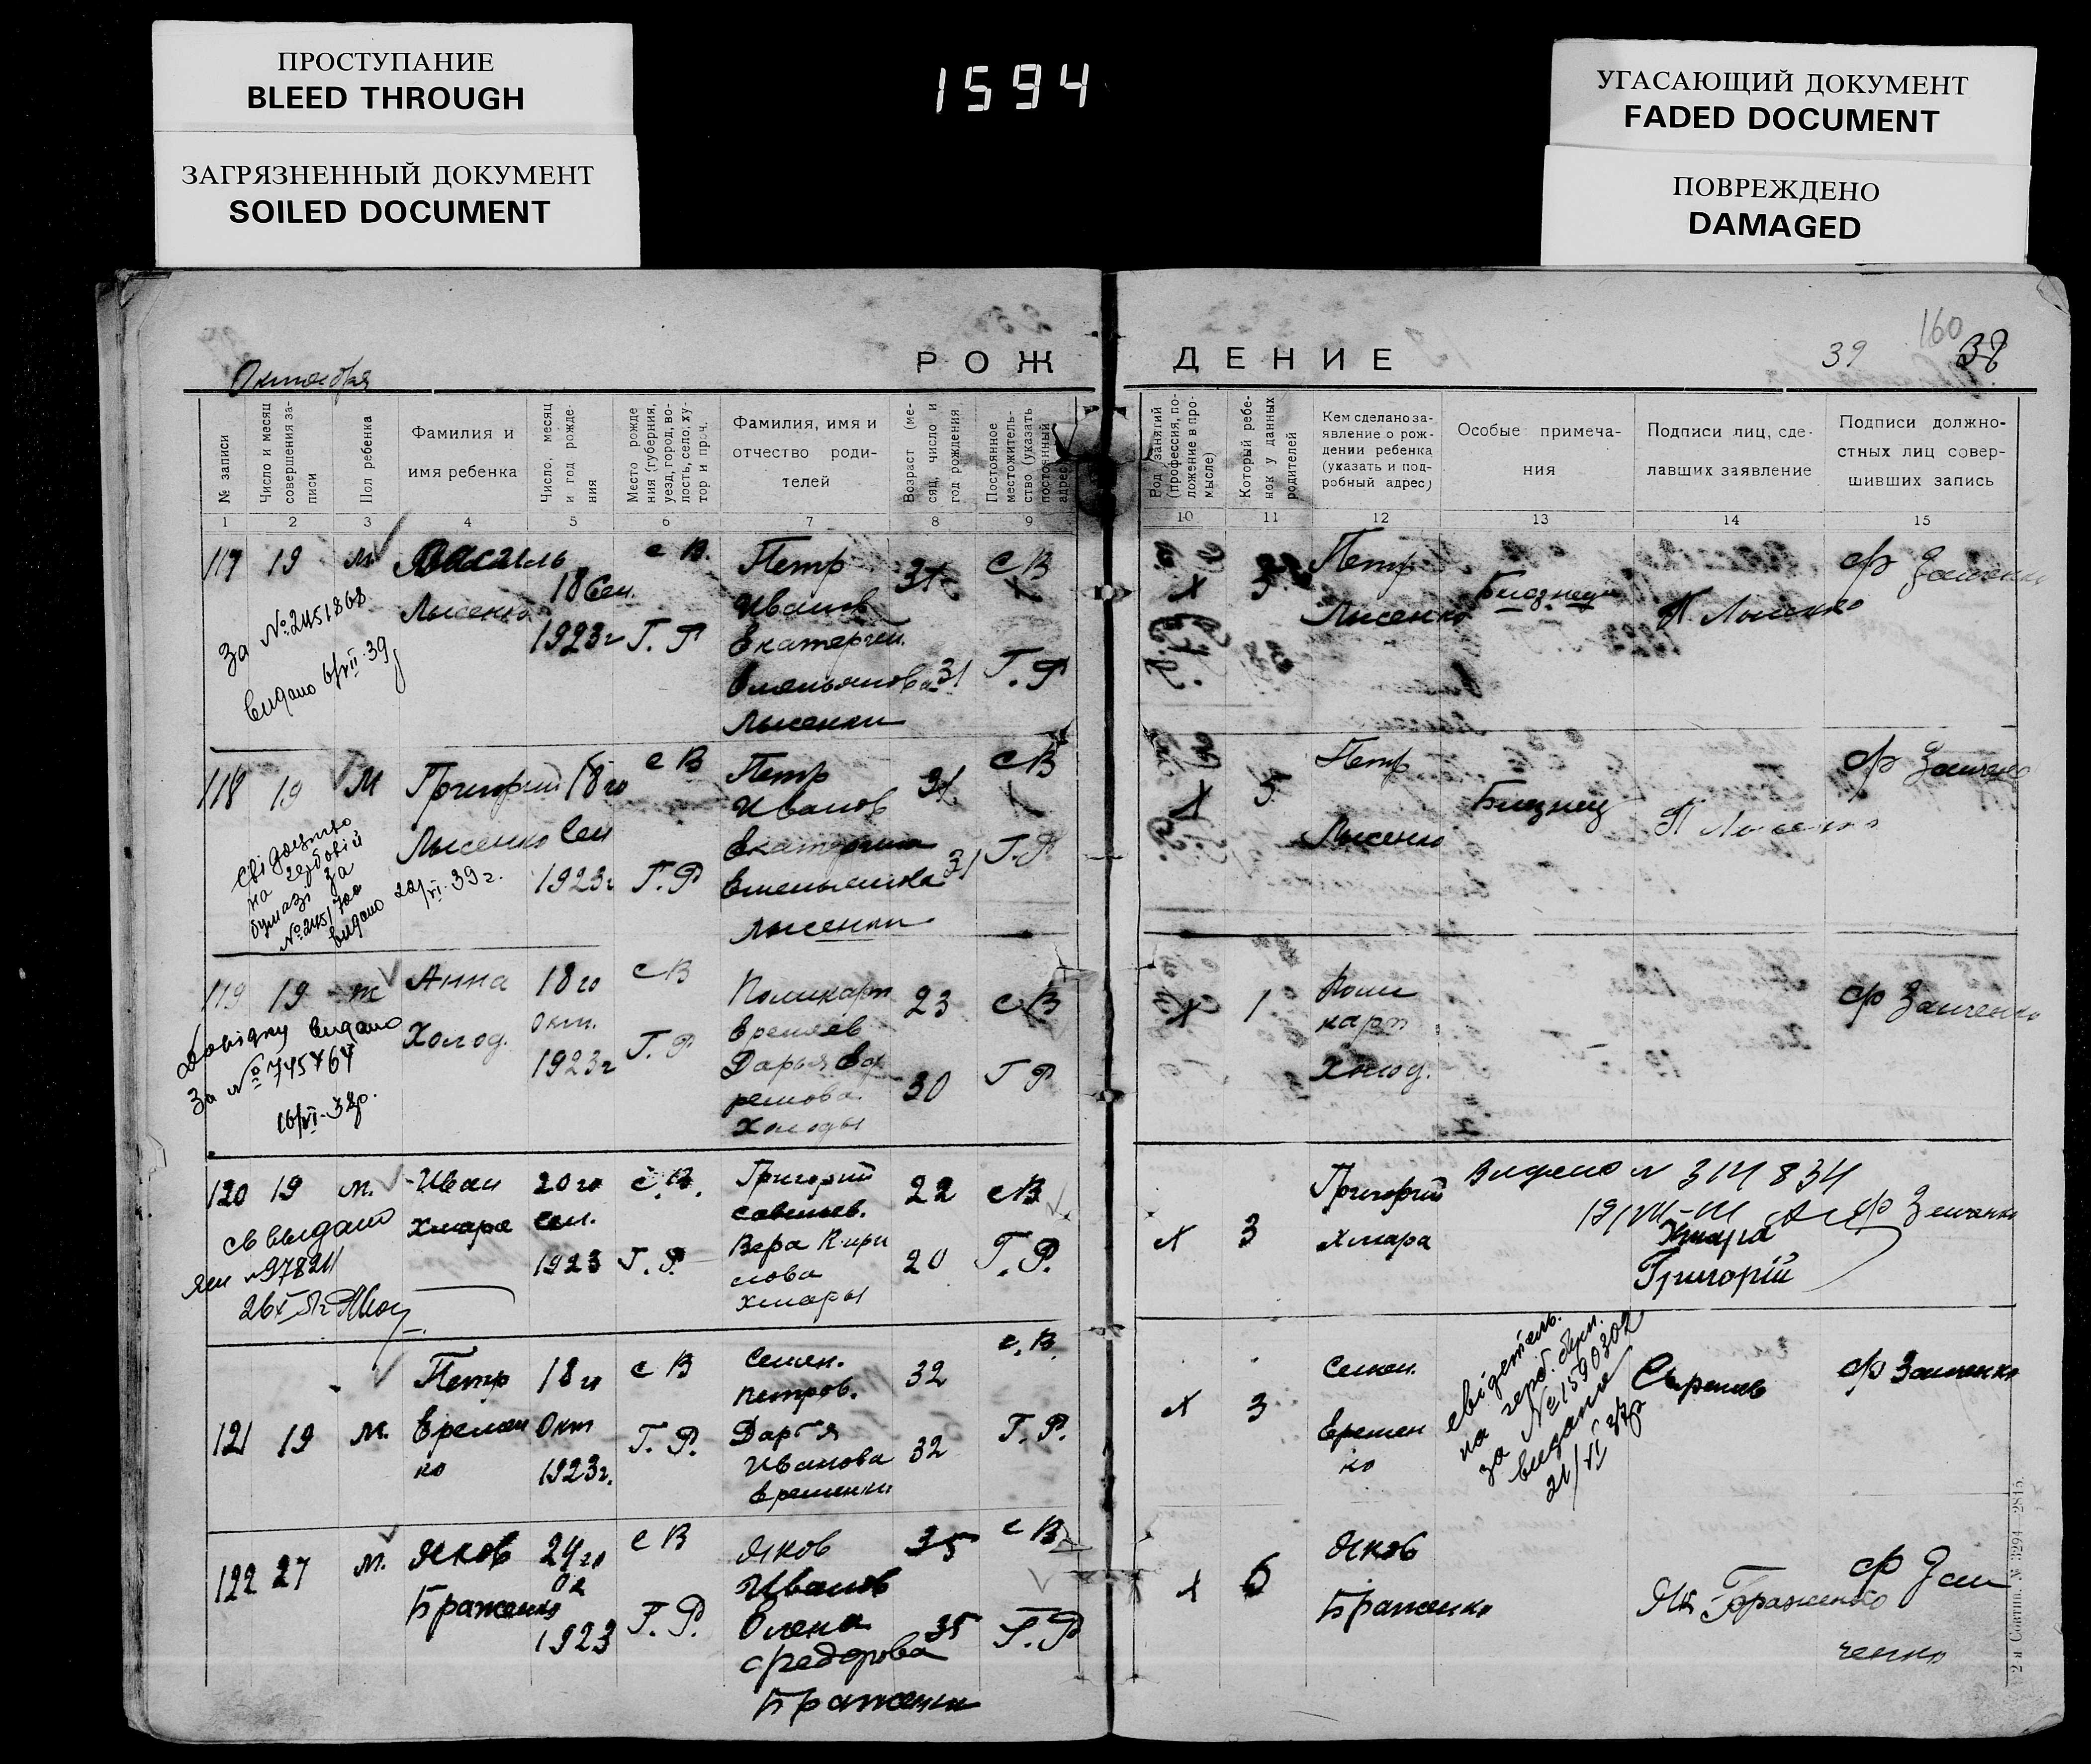 ПРОСТУПАНИЕ
BLEED THROUGH
ЗАГРЯЗНЕННЫЙ ДОКУМЕНТ
SOILED DOCUMENT
1594
УГАСАЮЩИЙ ДОКУМЕНТ
FADED DOCUMENT
ПОВРЕЖДЕНО
DAMAGED
160
39 38
РОЖДЕНИЕ
Октября
№ записи
Число и месяц
совершения за-
писи
Пол ребенка
Фамилия и
имя ребенка
Число, месяц
и год рожде-
ния
Место рожде
ния (губерния,
уезд, город, во-
лость, село, ху-
тор и проч.
Фамилия, имя и
отчество роди-
телей
Возраст (ме-
сяц, число и
год рождения
Постоянное
местожитель-
ство (указать
постоянный
адрес)
Род занятий
(профессия, по-
ложение в про-
мысле)
Который ребе-
нок у данных
родителей
Кем сделано за-
явление о рож-
дении ребенка
(указать и под-
робный адрес)
Особые примеча-
ния
Подписи лиц, сде-
лавших заявление
Подписи должно-
стных лиц совер-
шивших запись
1 2 3 4 5 6 7 8 9 10 11 12 13 14 15
117 19 м. Василь
Лысенко
18 Сен.
1923г
с В.
Г. Р
Петр
Иванов
Екатерин.
Емельянова
Лысенки
31
31
с В
Г. Р
х
Петр
Лысенко
Близнецы
П Лысенко
За №2451868
видано 6/VII·39
118 19 М Григорий
Лысенко
18 го
Сен
1923г
с В
Г. Р
Петр
Иванов
Екатерина
Емельянова
Лысенки
31
31
с В
Г. Р
х 5
Петр
Лысенко
Близнец
П Лысенко
Свідоцтво
на гербовій
бумазі за
видано 22/VI·39г.
119 19 ж Анна
Холод.
18 го
Окт.
1923г
с В
Г. Р
Поликарп
Еремеев
Дарья
Холоды
23
30
с В
Г Р
х 1
Поли
карп
Холод.
Довідку видано
За № 745764
16/VI·38р.
120 19 м. Иван
Хмара
20 го
Сен.
1923
с. В.
Г. Р.
Григорий
Савельев.
Вера Кири
лова
Хмары
22
20
с В
Г. Р.
х 3
Григорий
Хмара
Видано № 314834
Хмара
Григорій
св выдано
121 19 м. Петр
Еремен
ко
18 го
Окт
1923г.
с В
Г. Р.
Семен.
Петров.
Дарья
Иванова
Еременки
32
32
с. В.
Г. Р.
х 3
Семен.
Еремен
ко
свідетель.
на герб. бум.
за №1590302
видано
21/VI 37р
122 27 м. Яков
Браженко
24 го
1923
с В
Г. Р.
Яков
Иванов
Олена
Федорова
Браженки
35
35
с В
Г. Р
х 6
Яков
Браженко
Як Браженко
2-я Соктип. № 3294—2815.